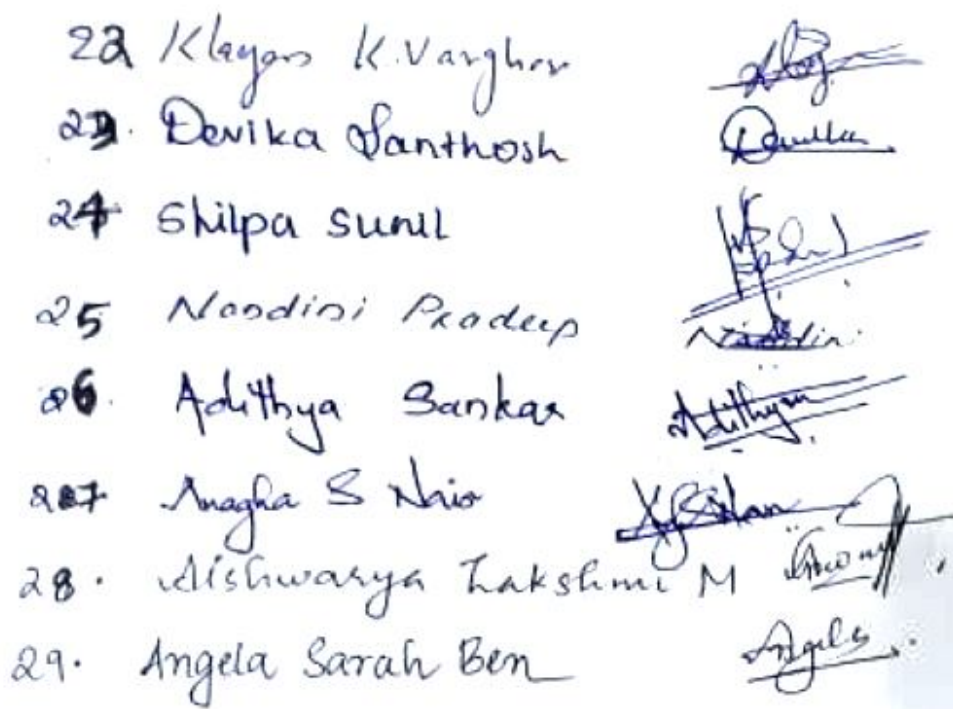 22 Klayons K. Varghese
23. Devika Santhosh Devika
24 Shilpa Sunil
25 Nandini Pradeep Nandini
26. Adithya Sankar Adithya
27 Anagha S Nair
28. Aishwarya Lakshmi M
29. Angela Sarah Ben Angela